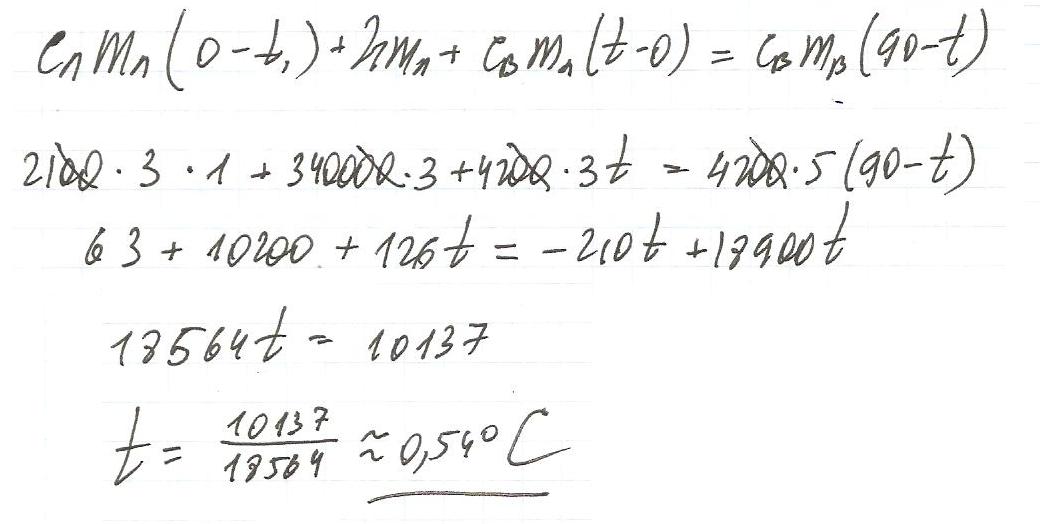 cл mл (0 - t₁) + λmл + cв mл (t - 0) = cв mв (90 - t)
2100 · 3 · 1 + 340000 · 3 + 4200 · 3t = 4200 · 5 (90 - t)
63 + 10200 + 126t = -210t + 18900t
18564t = 10137
t = 10137/18564 ≈ 0,54° C